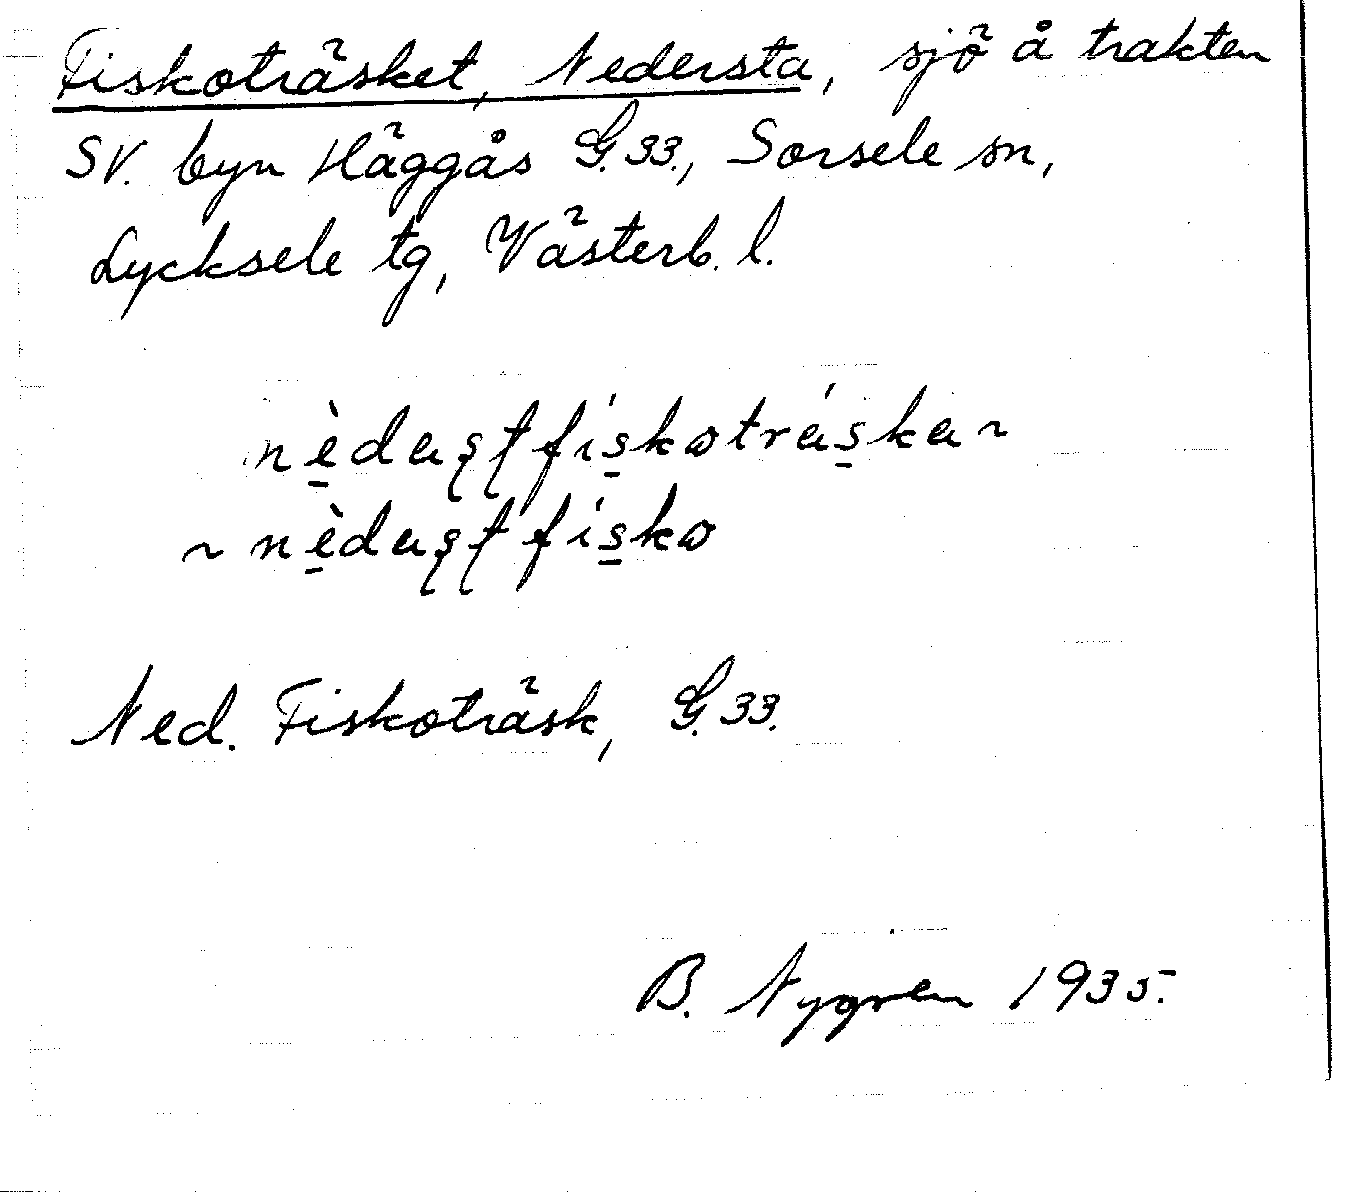 Fiskoträsket, Nedersta, sjö å trakten
SV. byn Häggås G.33., Sorsele sn,
Lycksele tg, Västerb. l.
~
~
Ned. Fiskoträsk, G.33.
B. Nygren 1935.